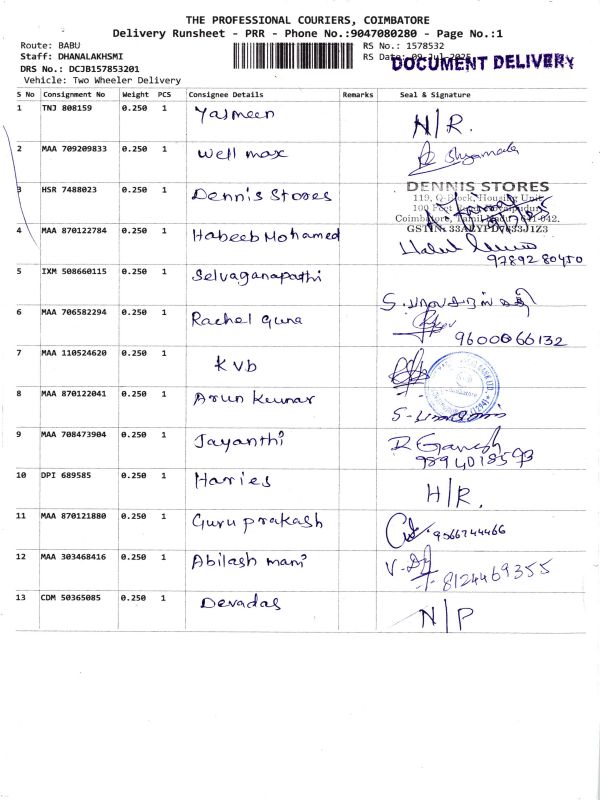 THE PROFESSIONAL COURIERS, COIMBATORE
Delivery Runsheet - PRR - Phone No.:9047080280 - Page No.:1
Route: BABU
RS No.: 1578532
Staff: DHANALAKHSMI
RS Date: 09-Jul-2025
DOCUMENT DELIVERY
DRS No.: DCJB157853201
Vehicle: Two Wheeler Delivery
S No Consignment No Weight PCS Consignee Details Remarks Seal & Signature
1 TNJ 808159 0.250 1 Yasmeen N/R.
2 MAA 709209833 0.250 1 Well max Shyamala
3 HSR 7488023 0.250 1 Dennis Stores
DENNIS STORES
119, Q-Block, Housing Unit,
Coimbatore, Tamil Nadu - 641 042.
GSTIN: 33
4 MAA 870122784 0.250 1 Habeeb Mohamed
9789280450
5 IXM 508660115 0.250 1 Selvaganapathi
6 MAA 706582294 0.250 1 Rachel Guna
9600066132
7 MAA 110524620 0.250 1 KVb
8 MAA 870122041 0.250 1 Arun Kumar
9 MAA 708473904 0.250 1 Jayanthi R Ganesh
9894018593
10 DPI 689585 0.250 1 Harries H/R.
11 MAA 870121880 0.250 1 Guru prakash 9566744466
12 MAA 303468416 0.250 1 Abilash mani 8124469355
13 CDM 50365085 0.250 1 Devadas N/P